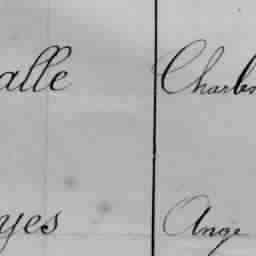 alle Charles
yes Ange